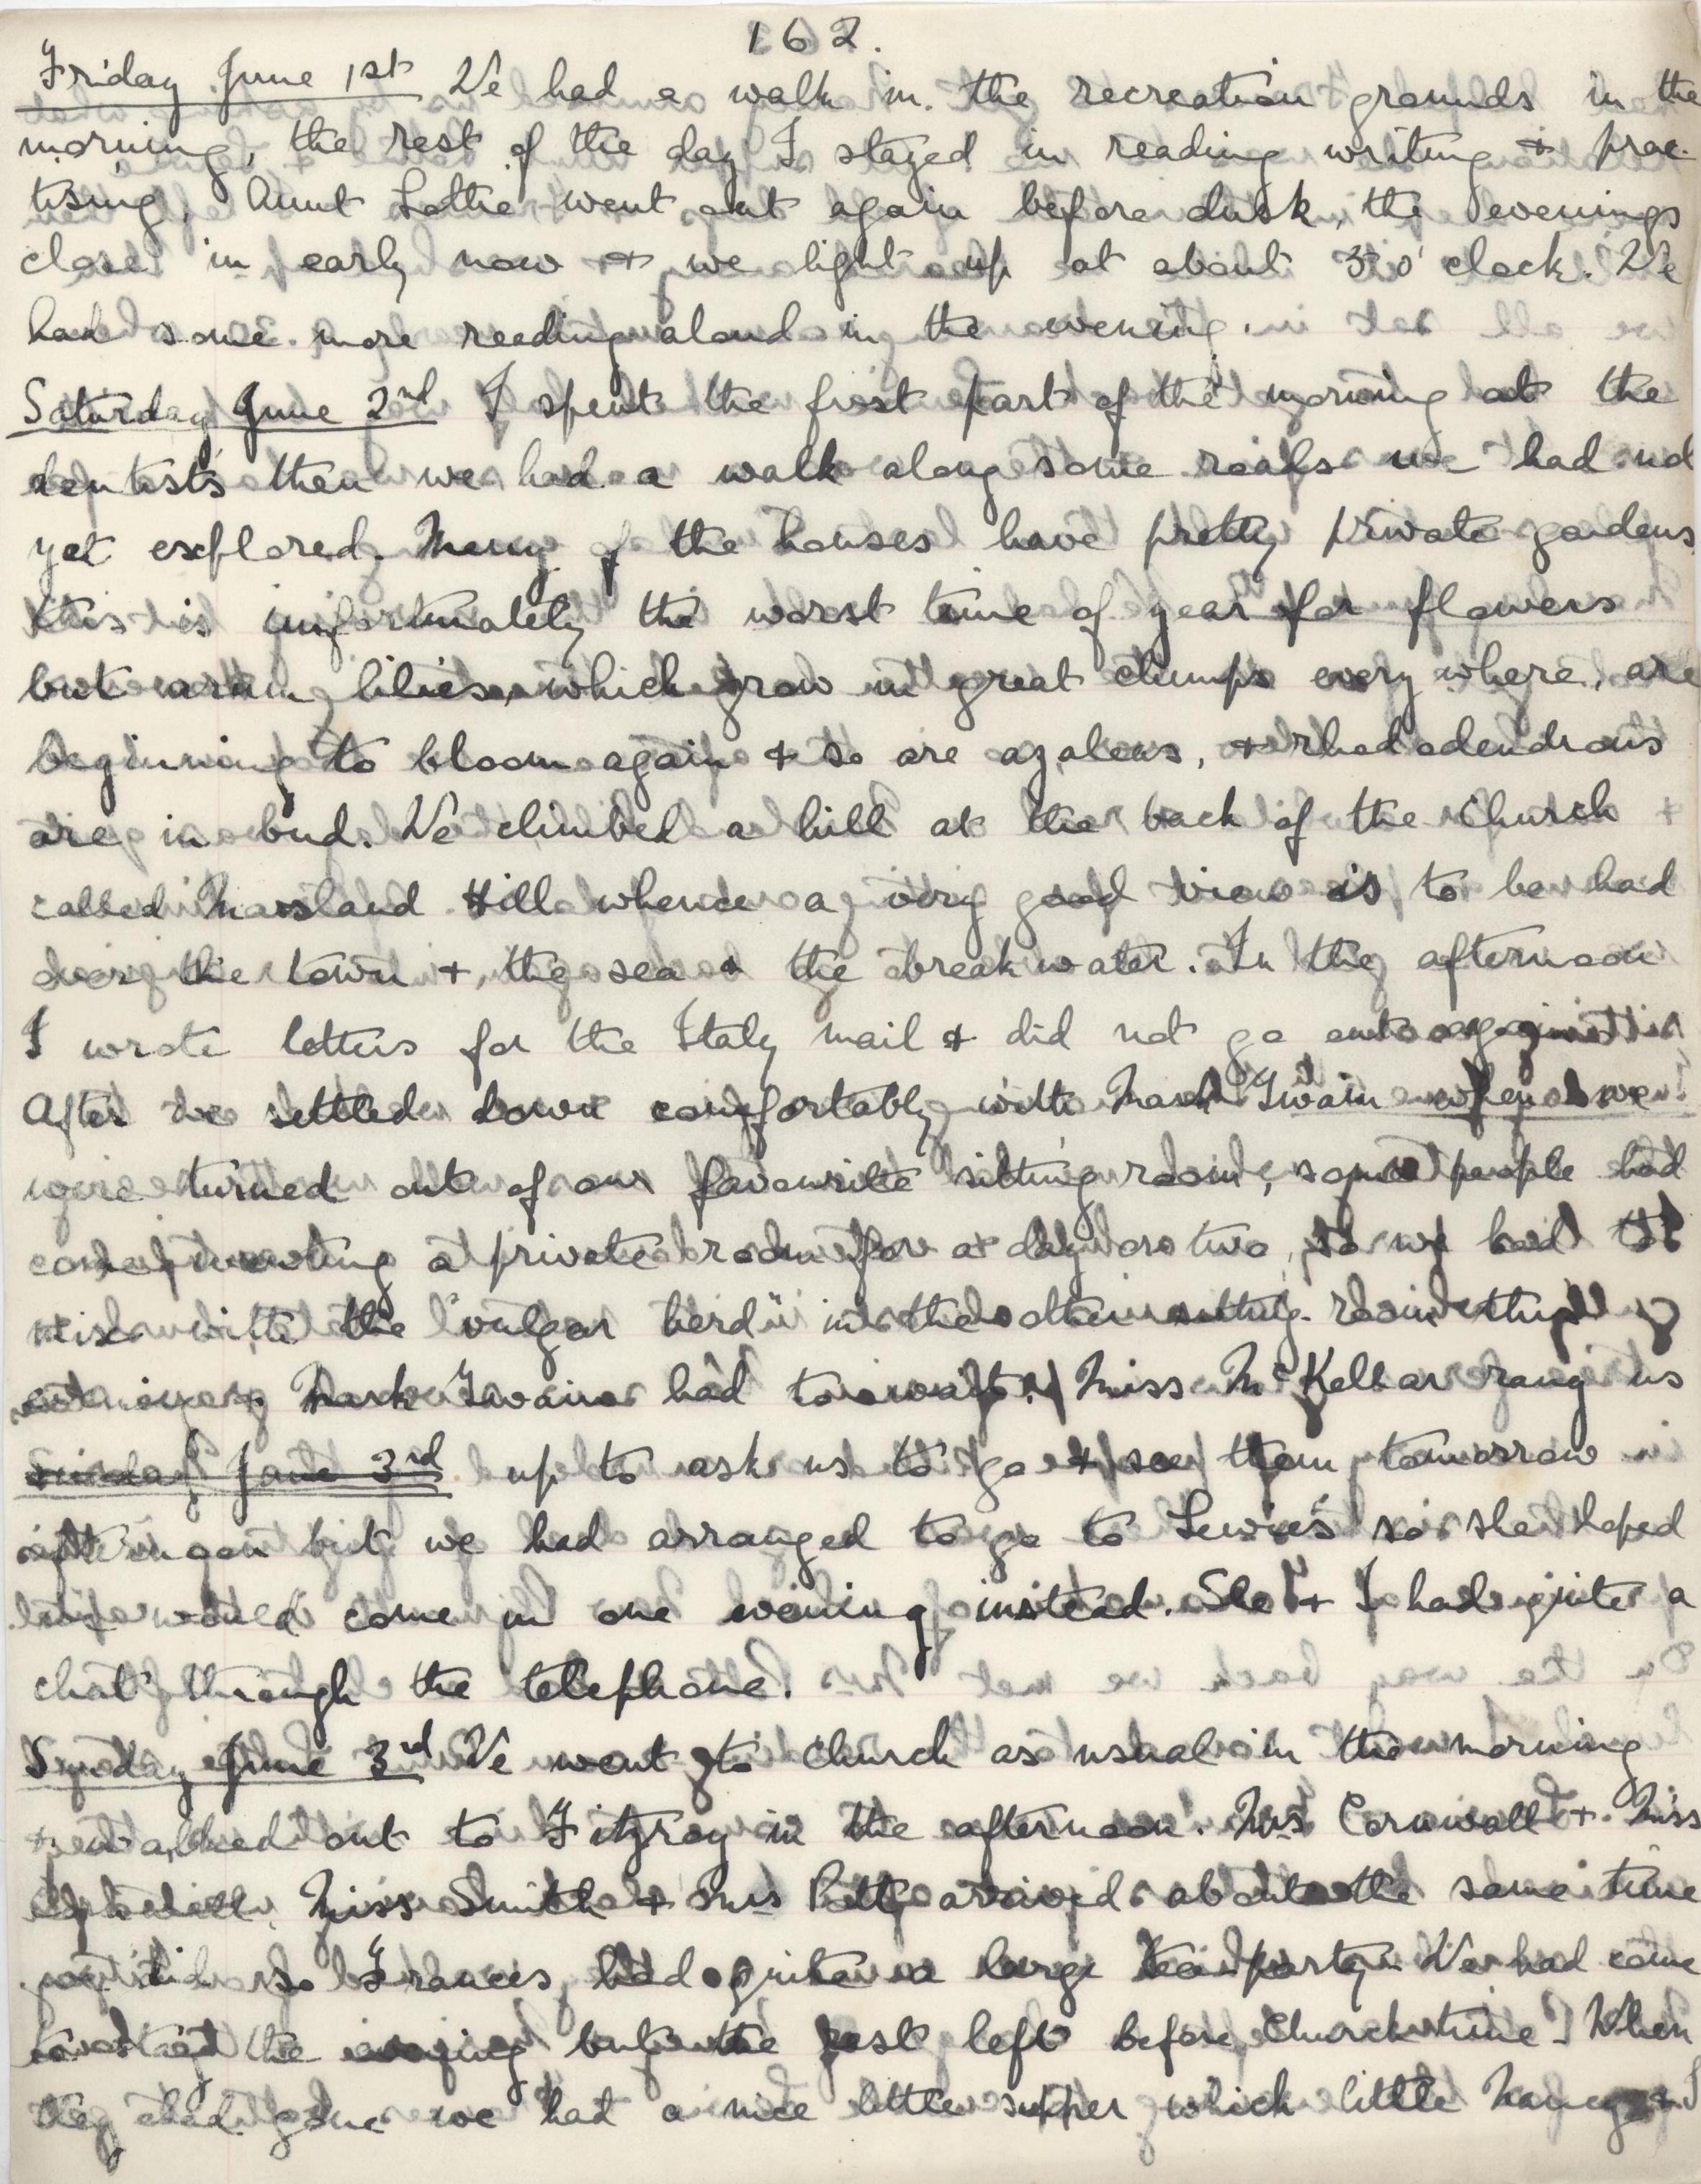 162.
Friday June 1st We had a walk in the recreation grounds in the
morning, the rest of the day I stayed in reading writing & prac-
tising, Aunt Lottie went out again before dusk, the evenings
close in early now & we light up at about 5 o'clock. We
had some more reading aloud in the evening.
Saturday June 2nd I spent the first part of the morning at the
dentists then we had a walk along some roads we had not
yet explored. Many of the houses have pretty private gardens
this is unfortunately the worst time of year for flowers
but arum lilies, which grow in great clumps every where, are
beginning to bloom again & so are azaleas, & rhododendrons
are in bud. We climbed a hill at the back of the Church
called Marsland Hill whence a very good view is to be had
over the town & the sea & the breakwater. In the afternoon
I wrote letters for the Italy mail & did not go out again
After we settled down comfortably with Mark Twain when we
were turned out of our favourite sitting room, some people had
come wanting a private room for a day or two, so we had to
mix with the "vulgar herd" in the other sitting-room this
evening & Mark Twain had to wait. Miss McKellar rang us
Sunday June 3rd up to ask us to go & see them tomorrow
afternoon but we had arranged to go to Lewies so she hoped
we would come in one evening instead. She & I had quite a
chat through the telephone.
Sunday June 3rd We went to Church as usual in the morning
& walked out to Fitzroy in the afternoon. Mrs Cornwall & Miss
Miss Smith & Mrs Potts arrived about the same time
we did so Frances had quite a large tea-party. We had come
to the evening but the rest left before Church time. When
they had gone we had a nice little supper which little Nancy & I